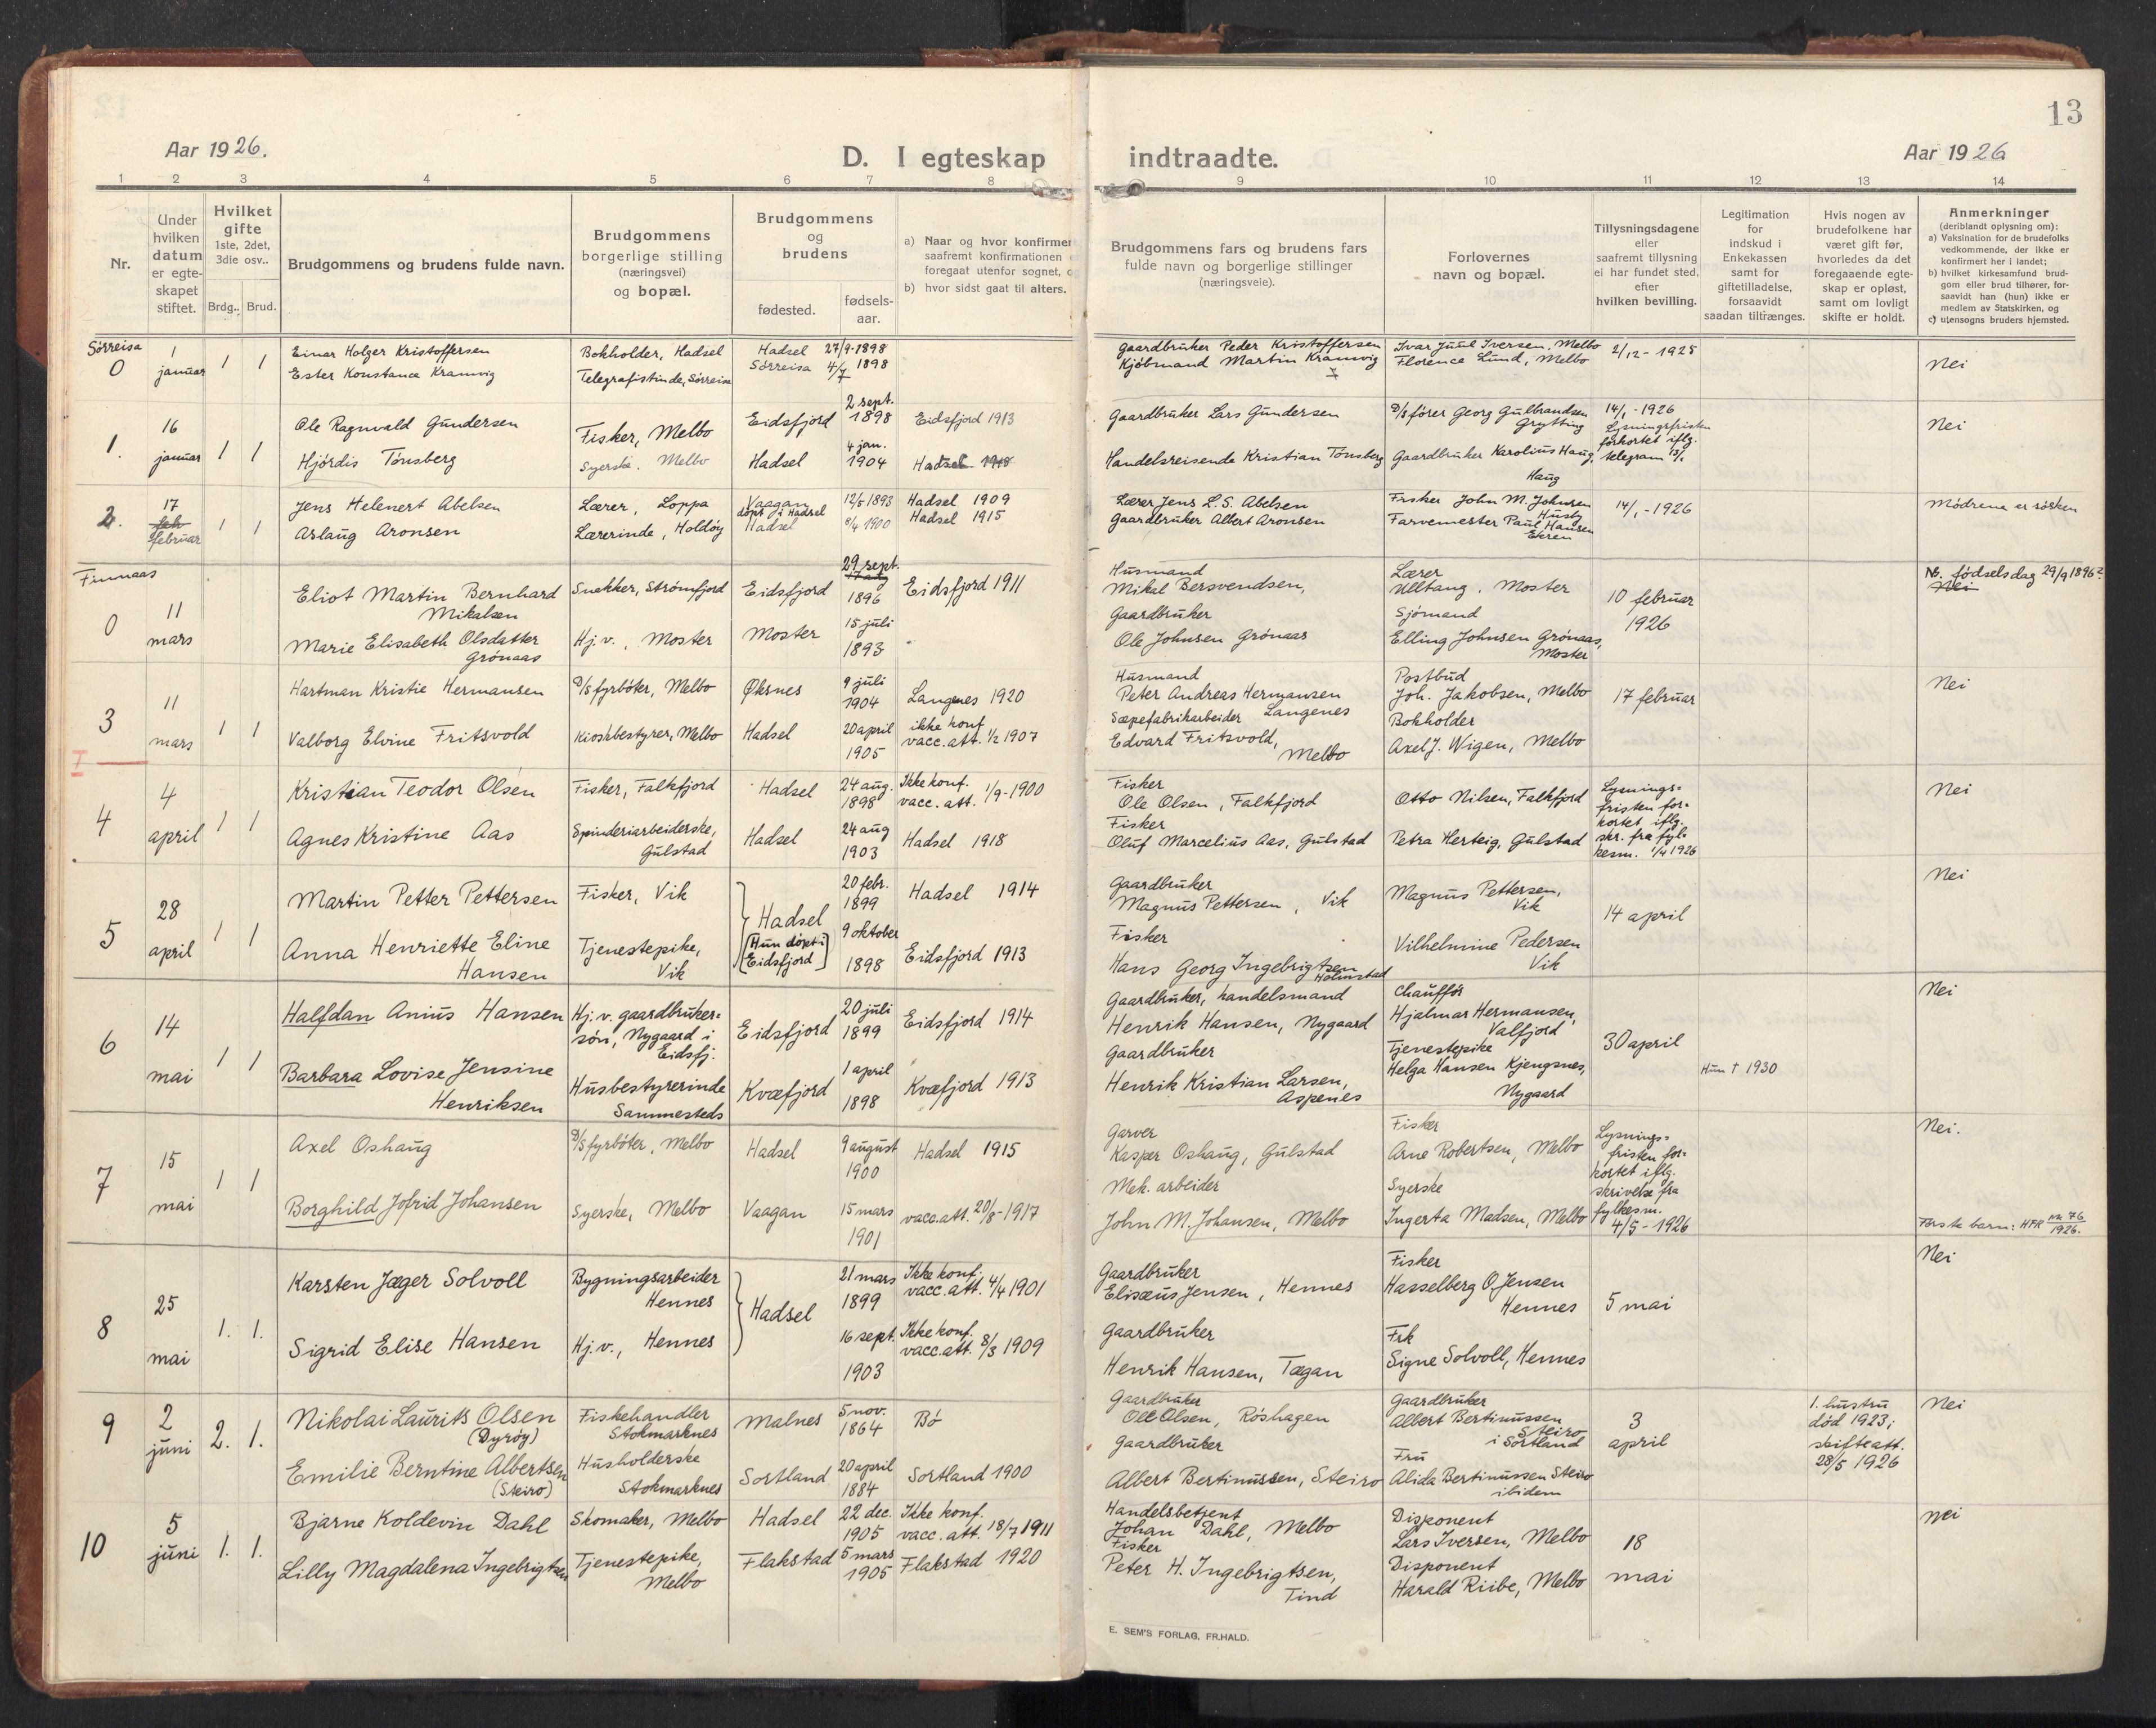 13
Aar 1926.
D. I egteskap indtraadte.
Aar 1926
1 2 3 4 5 6 7 8 9 10 11 12 13 14
Nr.
Under hvilken datum er egte-skapet stiftet.
Hvilket gifte 1ste, 2det, 3die osv..
Brdg.. Brud.
Brudgommens og brudens fulde navn.
Brudgommens borgerlige stilling (næringsvei) og bopæl.
Brudgommens og brudens
fødested.
fødsels-aar.
a) Naar og hvor konfirmer
saafremt konfirmationen
foregaat utenfor sognet, o
b) hvor sidst gaat til alters.
Brudgommens fars og brudens fars fulde navn og borgerlige stillinger (næringsveie).
Forlovernes navn og bopæl.
Tillysningsdagene eller saafremt tillysning ei har fundet sted, efter hvilken bevilling.
Legitimation for indskud i Enkekassen samt for giftetilladelse, forsaavidt saadan tiltrænges.
Hvis nogen av brudefolkene har været gift før, hvorledes da det foregaaende egte-skap er opløst, samt om lovligt skifte er holdt.
Anmerkninger
(deriblandt oplysning om):
a) Vaksination for de brudefolks vedkommende, der ikke er konfirmert her i landet;
b) hvilket kirkesamfund brud-gom eller brud tilhører, for-saavidt han (hun) ikke er medlem av Statskirken, og
c) utensogns bruders hjemsted.
Sørreisa
0 1 januar 1 1
Einar Holger Kristoffersen Bokholder, Hadsel Hadsel 27/9-1898
Ester Konstance Kramvig Telegrafistinde, Sørreisa Sørreisa 4/7 1898
Gaardbruker Peder Kristoffersen Ivar Juul Iversen, Melbo 2/12-1925 Nei
Kjøbmand Martin Kramvig Florence Lund, Melbo
1. 16 januar 1 1
Ole Ragnvald Gundersen Fisker, Melbo Eidsfjord 2 sept. 1898 Eidsfjord 1913
Hjørdis Tønsberg Syerske. Melbo Hadsel 4 jan. 1904 Hadsel 1918
Gaardbruker Lars Gundersen D/S fører Georg Gulbrandsen Grytting 14/1-1926 Nei
Handelsreisende Kristian Tønsberg Gaardbruker Karolius Haug, Haug
Lysningsfristen forkortet iflg. telegram 13/1
2. 17 feb februar 1 1
Jens Helenert Abelsen Lærer, Loppa Vaagan døpt i Hadsel 12/5 1893 Hadsel 1909
Aslaug Aronsen Lærerinde, Holdøy Hadsel 8/4 1900 Hadsel 1915
Lærer Jens L. S. Abelsen Fisker John M. Johnsen Husby 14/1-1926 Mødrene er søsken
Gaardbruker Albert Aronsen Farvemester Paul Hansen Ekren
Finnaas
0 11 mars
Eliot Martin Bernhard Mikalsen Snekker, Strømfjord Eidsfjord 29 sept. 17 aug 1896 Eidsfjord 1911
Marie Elisabeth Olsdatter Grønaas Hj.v., Moster Moster 15 juli 1893
Husmand Mikal Bersvendsen, Lærer Ulltang, Moster 10 februar 1926 NB. fødselsdag 29/9 1896? Nei
Gaardbruker Ole Johnsen Grønaas Sjømand Elling Johnsen Grønaas, Moster
3 11 mars 1 1
Hartman Kristie Hermansen D/S fyrbøter, Melbo Øksnes 9 juli 1904 Langenes 1920
Valborg Elvine Fritsvold Kioskbestyrer, Melbo Hadsel 20 april 1905 ikke konf. vacc. att. 1/2 1907
Husmand Peter Andreas Hermansen Langenes Postbud Joh. Jakobsen, Melbo 17 februar Nei
Sæpefabrikarbeider Edvard Fritsvold, Melbo Bokholder Axel J. Wigen, Melbo
I
4 4 april 1 1
Kristian Teodor Olsen Fisker, Falkfjord Hadsel 24 aug. 1898 Ikke konf. vacc. att. 1/9-1900
Agnes Kristine Aas Spinderiarbeiderske, Gulstad Hadsel 24 aug 1903 Hadsel 1918
Fisker Ole Olsen, Falkfjord Otto Nilsen, Falkfjord Nei
Fisker Oluf Marcelius Aas, Gulstad Petra Herteig, Gulstad
Lysnings-fristen for-kortet iflg. skr. fra fyl-kesm. 1/4 1926
5 28 april 1 1
Martin Petter Pettersen Fisker, Vik Hadsel 20 febr. 1899 Hadsel 1914
Anna Henriette Eline Hansen Tjenestepike, Vik [Hun døpt i Eidsfjord] 9 oktober 1898 Eidsfjord 1913
Gaardbruker Magnus Pettersen, Vik Magnus Pettersen, Vik 14 april Nei
Fisker Hans Georg Ingebrigtsen Holmstad Vilhelmine Pedersen Vik
6 14 mai 1 1
Halfdan Anius Hansen Hj.v. gaardbruker-søn, Nygaard i Eidsfj. Eidsfjord 20 juli 1899 Eidsfjord 1914
Barbara Lovise Jensine Henriksen Husbestyrerinde Sammesteds Kvæfjord 1 april 1898 Kvæfjord 1913
Gaardbruker, handelsmand Henrik Hansen, Nygaard Chauffør Hjalmar Hermansen, Valfjord 30 april Nei
Gaardbruker Henrik Kristian Larsen, Aspenes Tjenestepike Helga Hansen Kjengsnes, Nygaard Hun † 1930
7 15 mai 1 1
Axel Oshaug D/S fyrbøter, Melbo Hadsel 9 august 1900 Hadsel 1915
Borghild Jofrid Johansen Syerske, Melbo Vaagan 15 mars 1901 vacc. att. 20/8-1917
Garver Kasper Oshaug, Gulstad Fisker Arne Robertsen, Melbo Nei.
Mek. arbeider John M. Johansen, Melbo Syerske Ingerta Madsen, Melbo
Lysnings-fristen for-kortet iflg. skrivelse fra fylkesm. 4/5-1926
Første barn: HFR nr. 76 1926.
8 25 mai 1. 1.
Karsten Jæger Solvoll Bygningsarbeider Hennes Hadsel 21 mars 1899 Ikke konf. vacc. att. 4/4 1901
Sigrid Elise Hansen Hj.v., Hennes 16 sept. 1903 Ikke konf. vacc. att. 8/3 1909
Gaardbruker Elisæus Jensen, Hennes Fisker Hasselberg O Jensen Hennes 5 mai Nei
Gaardbruker Henrik Hansen, Tægan Frk Signe Solvoll, Hennes
9 2 juni 2. 1.
Nikolai Laurits Olsen (Dyrøy) Fiskehandler Stokmarknes Malnes 5 nov. 1864 Bø
Emilie Berntine Albertsen (Steiro) Husholderske Stokmarknes Sortland 20 april 1884 Sortland 1900
Gaardbruker Ole Olsen, Røshagen Gaardbruker Albert Bertinussen Steiro i Sortland 3 april 1. hustru død 1923; skifteatt. 28/5 1926 Nei
Gaardbruker Albert Bertinussen, Steiro Fru Alida Bertinussen Steiro ibidem
10 5 juni 1. 1.
Bjarne Koldevin Dahl Skomaker, Melbo Hadsel 22 dec. 1905 Ikke konf. vacc. att. 18/7 1911
Lilly Magdalena Ingebrigtsen Tjenestepike, Melbo Flakstad 5 mars 1905 Flakstad 1920
Handelsbetjent Johan Dahl, Melbo Disponent Lars Iversen, Melbo 18 mai nei
Fisker Peter H. Ingebrigtsen, Tind Disponent Harald Riibe, Melbo
E. SEM'S FORLAG, FR.HALD.